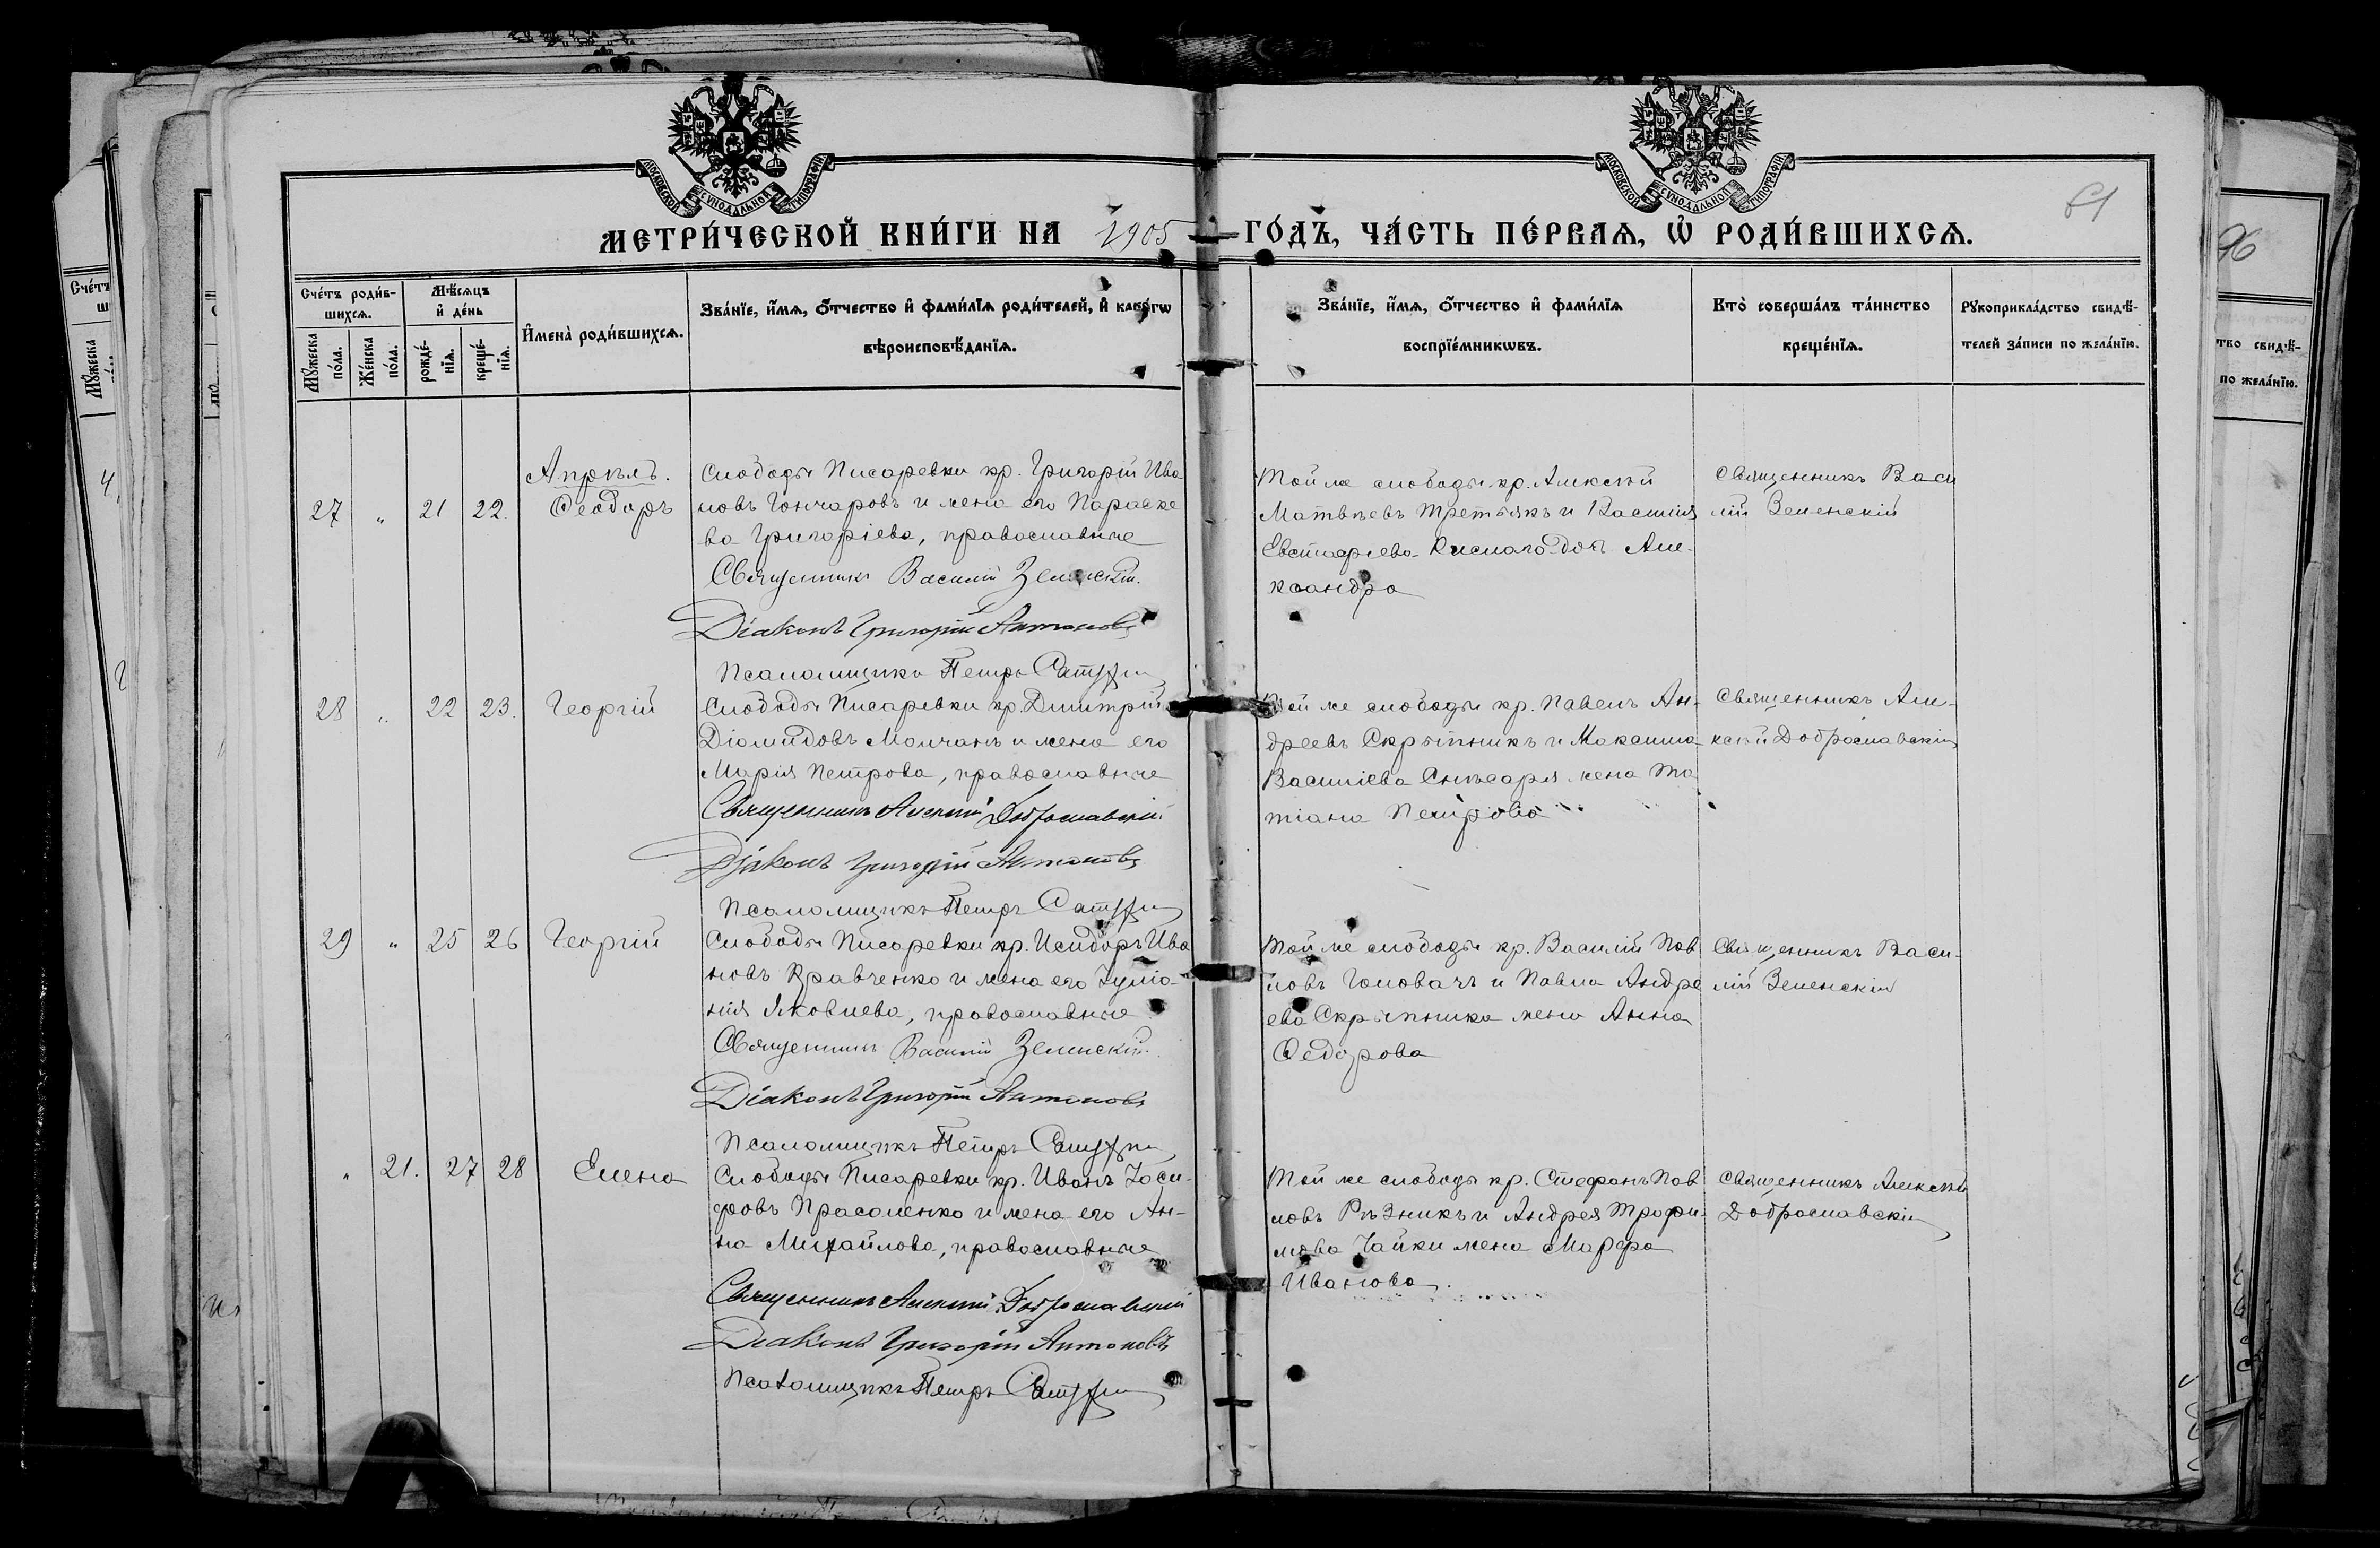 МОСКОВСКОЙ СѴНОДАЛЬНОЙ ТИПОГРАФІИ
МОСКОВСКОЙ СѴНОДАЛЬНОЙ ТИПОГРАФІИ
МЕТРИ́ЧЕСКОЙ КНИ́ГИ НА 1905 ГО́ДЪ, ЧА́СТЬ ПЕ́РВАЯ, Ѡ҆ РОДИ́ВШИХСЯ.
Сче́тъ роди́в-
шихся.
Мꙋ́жеска по́ла.
Же́нска по́ла.
Мѣ́сяцъ
и҆ де́нь
рожде́-
нїя.
креще́-
нїя.
И҆мена̀ роди́вшихся.
Зва́нїе, и҆́мя, ѻ҆́тчество и҆ фами́лїя роди́телей, и҆ како́гѡ
вѣроисповѣ́данїя.
Зва́нїе, и҆́мя, ѻ҆́тчество и҆ фами́лїя
воспрїе́мникѡвъ.
Кто̀ соверша́лъ та́инство
креще́нїя.
Рꙋкоприкла́дство свидѣ́-
телей за́писи по жела́нїю.
Апрѣль.
27 " 21 22. Ѳеодоръ
Слободы Писаревки кр. Григорій Ива
новъ Гончаровъ и жена его Параске
ва Григоріева, православные
Священникъ Василій Зеленскій.
Діаконъ Григорій Антоновъ
Псаломщикъ Петръ
Той же слободы кр. Алексѣй
Матвѣевъ Третьякъ и Василія
Евстафіева Кислаго доч. Але-
ксандра
Священникъ Васи
лій Зеленскій
28 " 22 23. Георгій
Слободы Писаревки кр. Дмитрій
Діомидовъ Молчанъ и жена его
Марія Петрова, православные
Священникъ Алексій Доброславскій
Діаконъ Григорій Антоновъ
Псаломщикъ Петръ
Той же слободы кр. Павелъ Ан-
дреевъ Скрыпникъ и Максима
Василіева Снѣсаря жена Та
тіана Петрова
Священникъ Але-
ксѣй Доброславскій
29 " 25 26 Георгій
Слободы Писаревки кр. Исидоръ Ива
новъ Кравченко и жена его Іуліа-
нія Яковлева, православные
Священникъ Василій Зеленскій.
Діаконъ Григорій Антоновъ
Псаломщикъ Петръ
Той же слободы кр. Василій Пав
ловъ Головачъ и Павла Андре
ева Скрыпника жена Анна
Ѳедорова
Священникъ Васи-
лій Зеленскій
" 21. 27 28 Елена
Слободы Писаревки кр. Иванъ Іоси-
фовъ Прасоленко и жена его Ан-
на Михайлова, православные
Священникъ Алексій Доброславскій
Діаконъ Григорій Антоновъ
Псаломщикъ Петръ
Той же слободы кр. Стефанъ Пав
ловъ Рѣзникъ и Андрея Трофи
мова Чайки жена Марѳа
Иванова.
Священникъ Алексѣй
Доброславскій